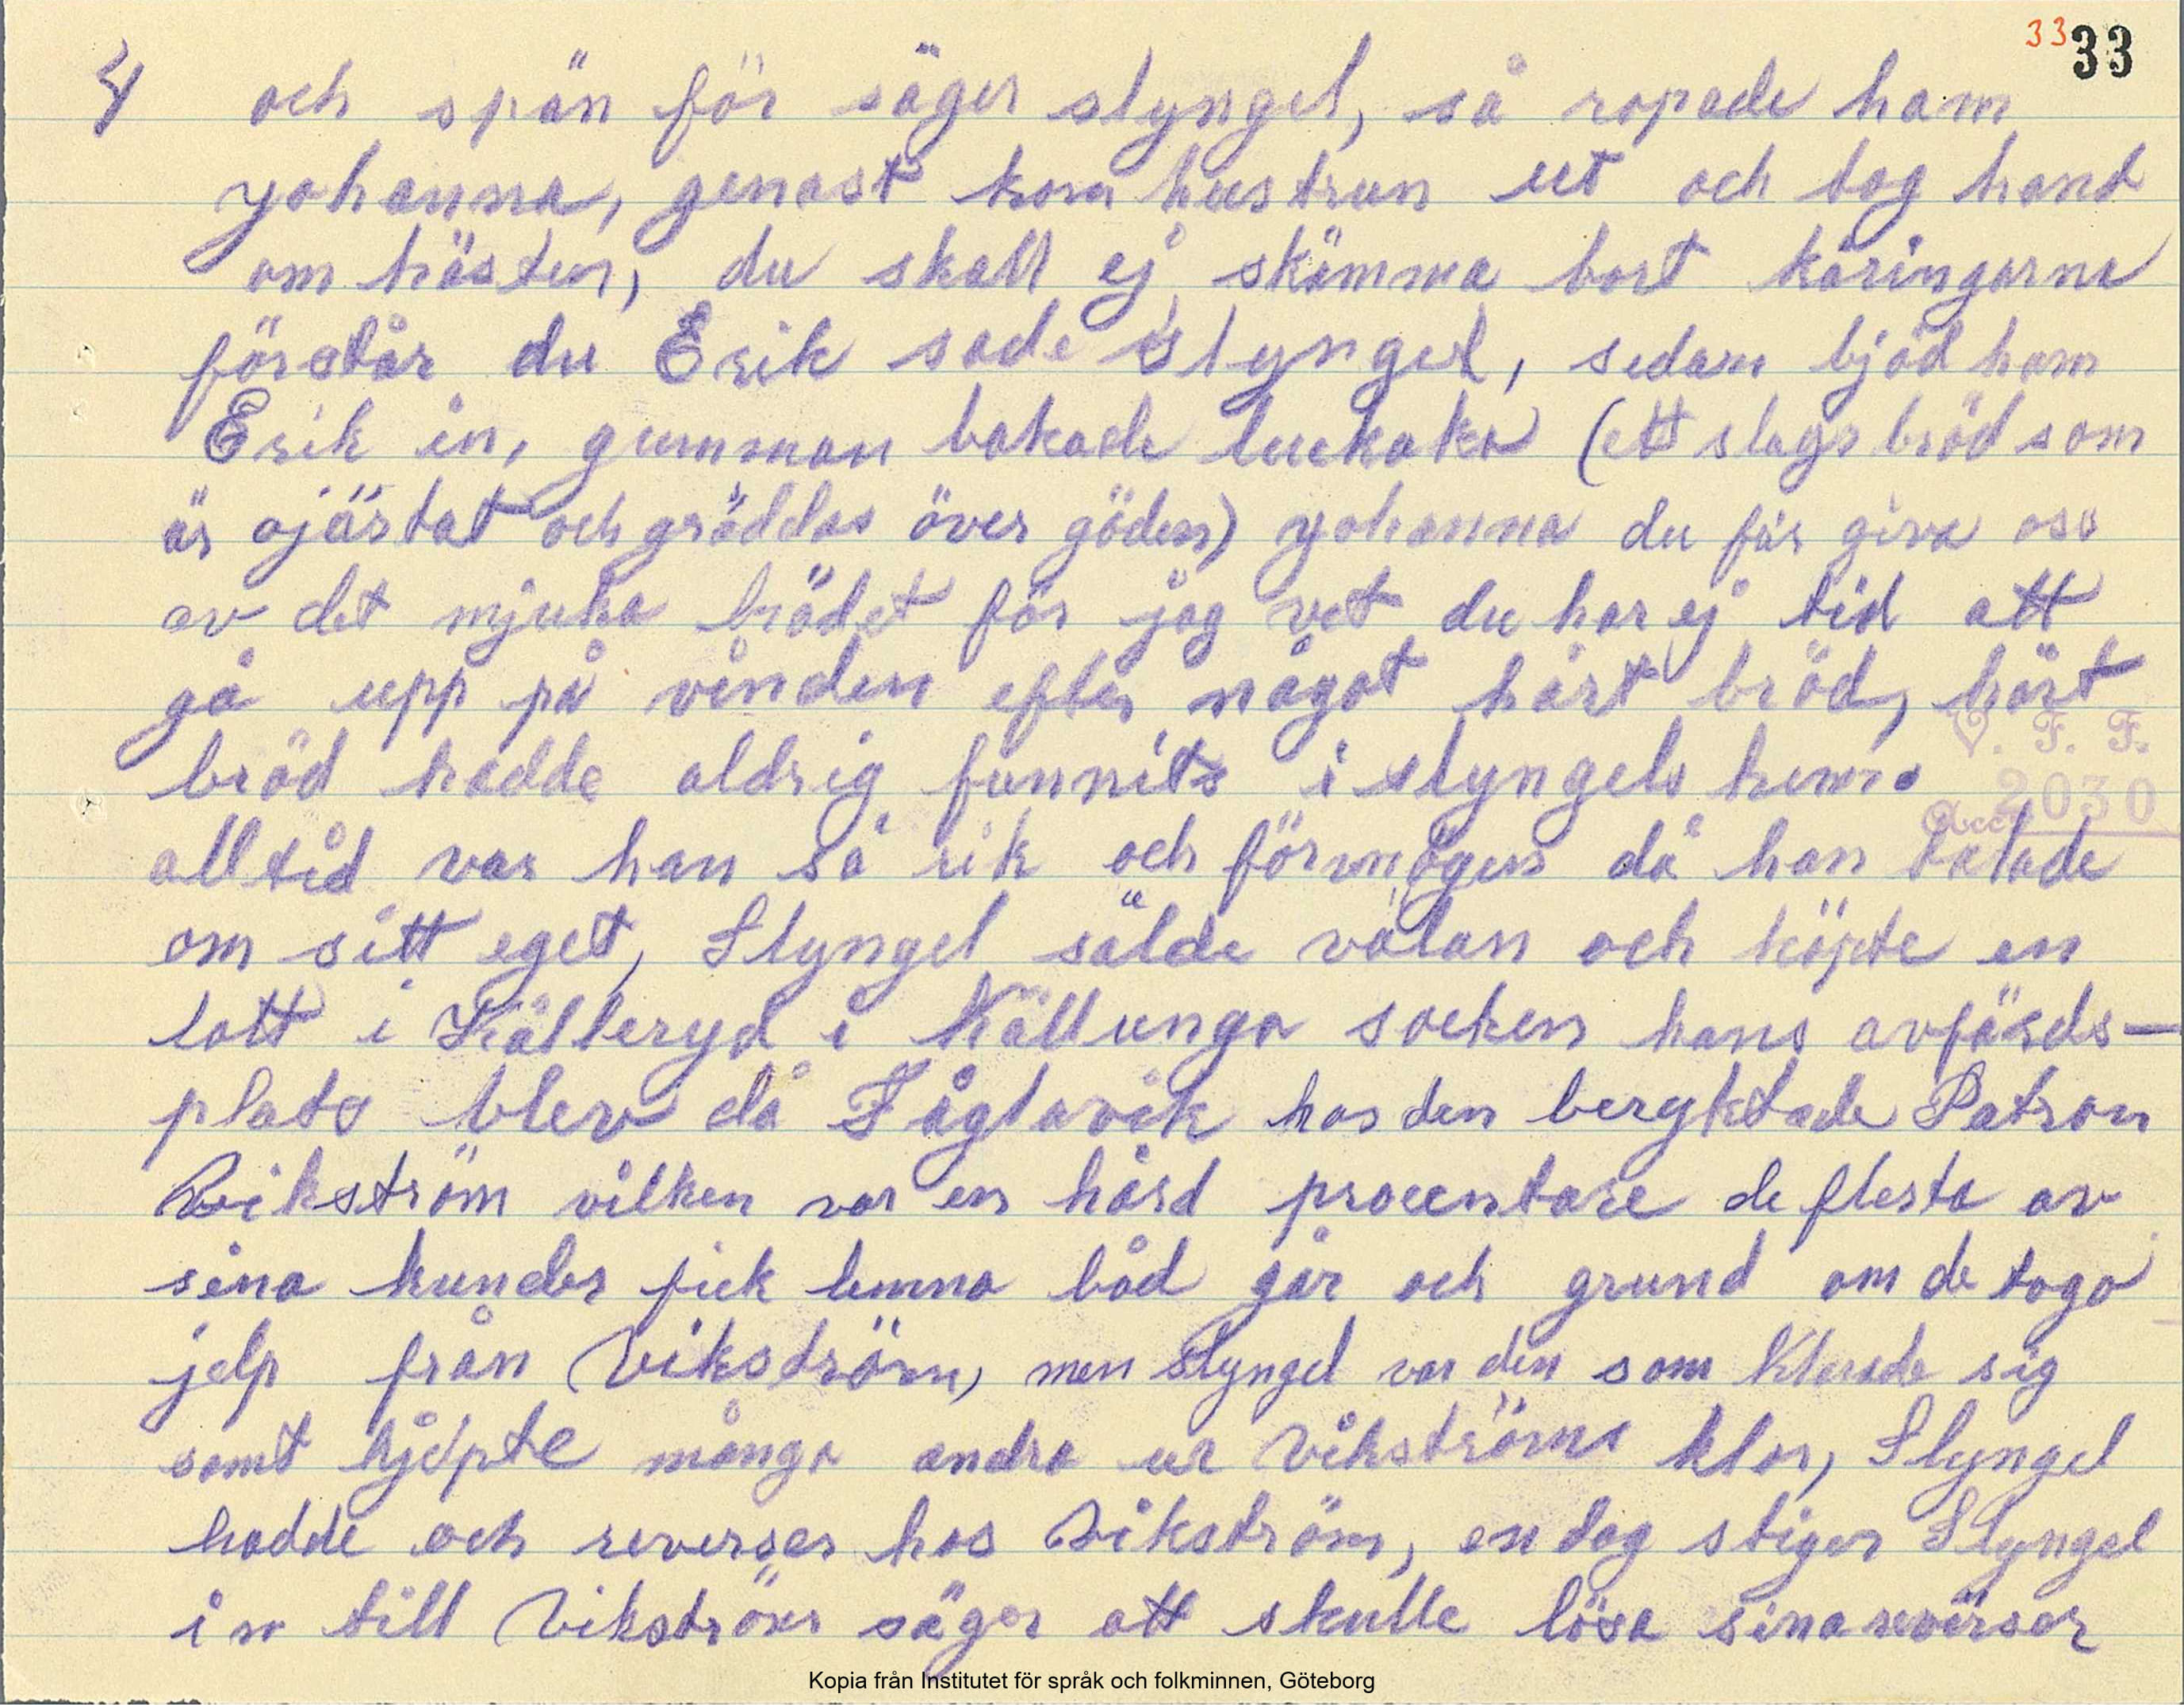 33 33
4 och spän för säger slyngel, så ropade han
yohanna, genast kom hustrun ut och tog hand
om hästen, du skall ej skämma bort käringarna
förstår du Erik sade Slyngel, sedan bjöd han
Erik in, gumman bakade luckaka (ett slags bröd som
är ojästat och gräddas över glöden) yohanna du får giva oss
av det mjuka brödet för jag vet du har ej tid att
gå upp på vinden efter något hårt bröd, hårt
bröd hadde aldrig funnits i slyngels hem.
V. F. F.
Acc. 2030
alltid var han så rik och förmögen då han talade
om sitt eget, Slyngel sålde och köpte en
lott i Källeryd i Källunga socken hans avfärds-
plats blev då Fåglavik hos den beryktade Patron
Vikström vilken var en hård procentare de flesta av
sina kunder fick lemna båd går och grund om de togo
jelp från Vikström, men Slyngel var den som klarade sig
samt hjelpte många andra ur Vikströms klor, Slyngel
hadde och reverser hos Vikström, en dag stiger Slyngel
in till Vikström säger att skulle lösa sina reverser
Kopia från Institutet för språk och folkminnen, Göteborg